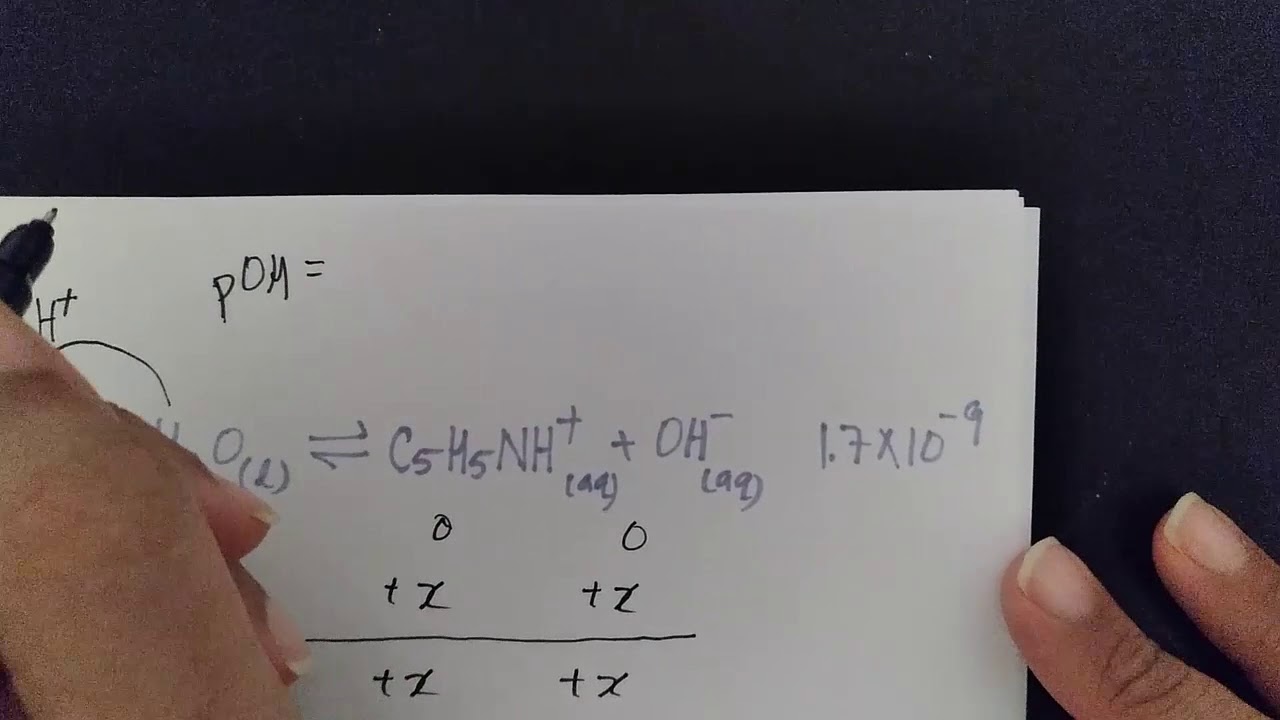 pOH =
H⁺
O(l) ⇌ C₅H₅NH⁺(aq) + OH⁻(aq) 1.7×10⁻⁹
0 0
+x +x
+x +x